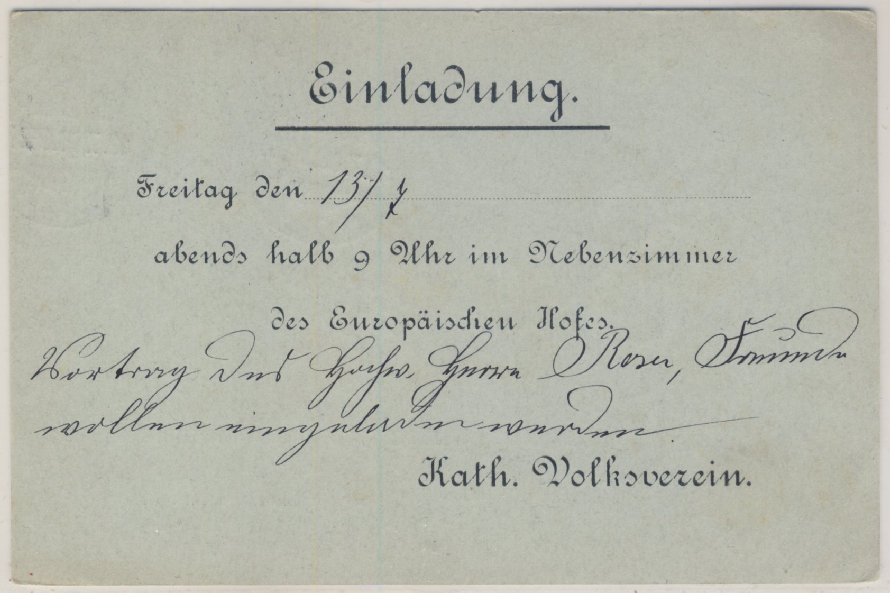 Einladung.
Freitag den 13/7
abends halb 9 Uhr im Nebenzimmer
des Europäischen Hofes.
Vortrag des Hochw. Herrn Roser, Freunde
wollen eingeladen werden
Kath. Volksverein.